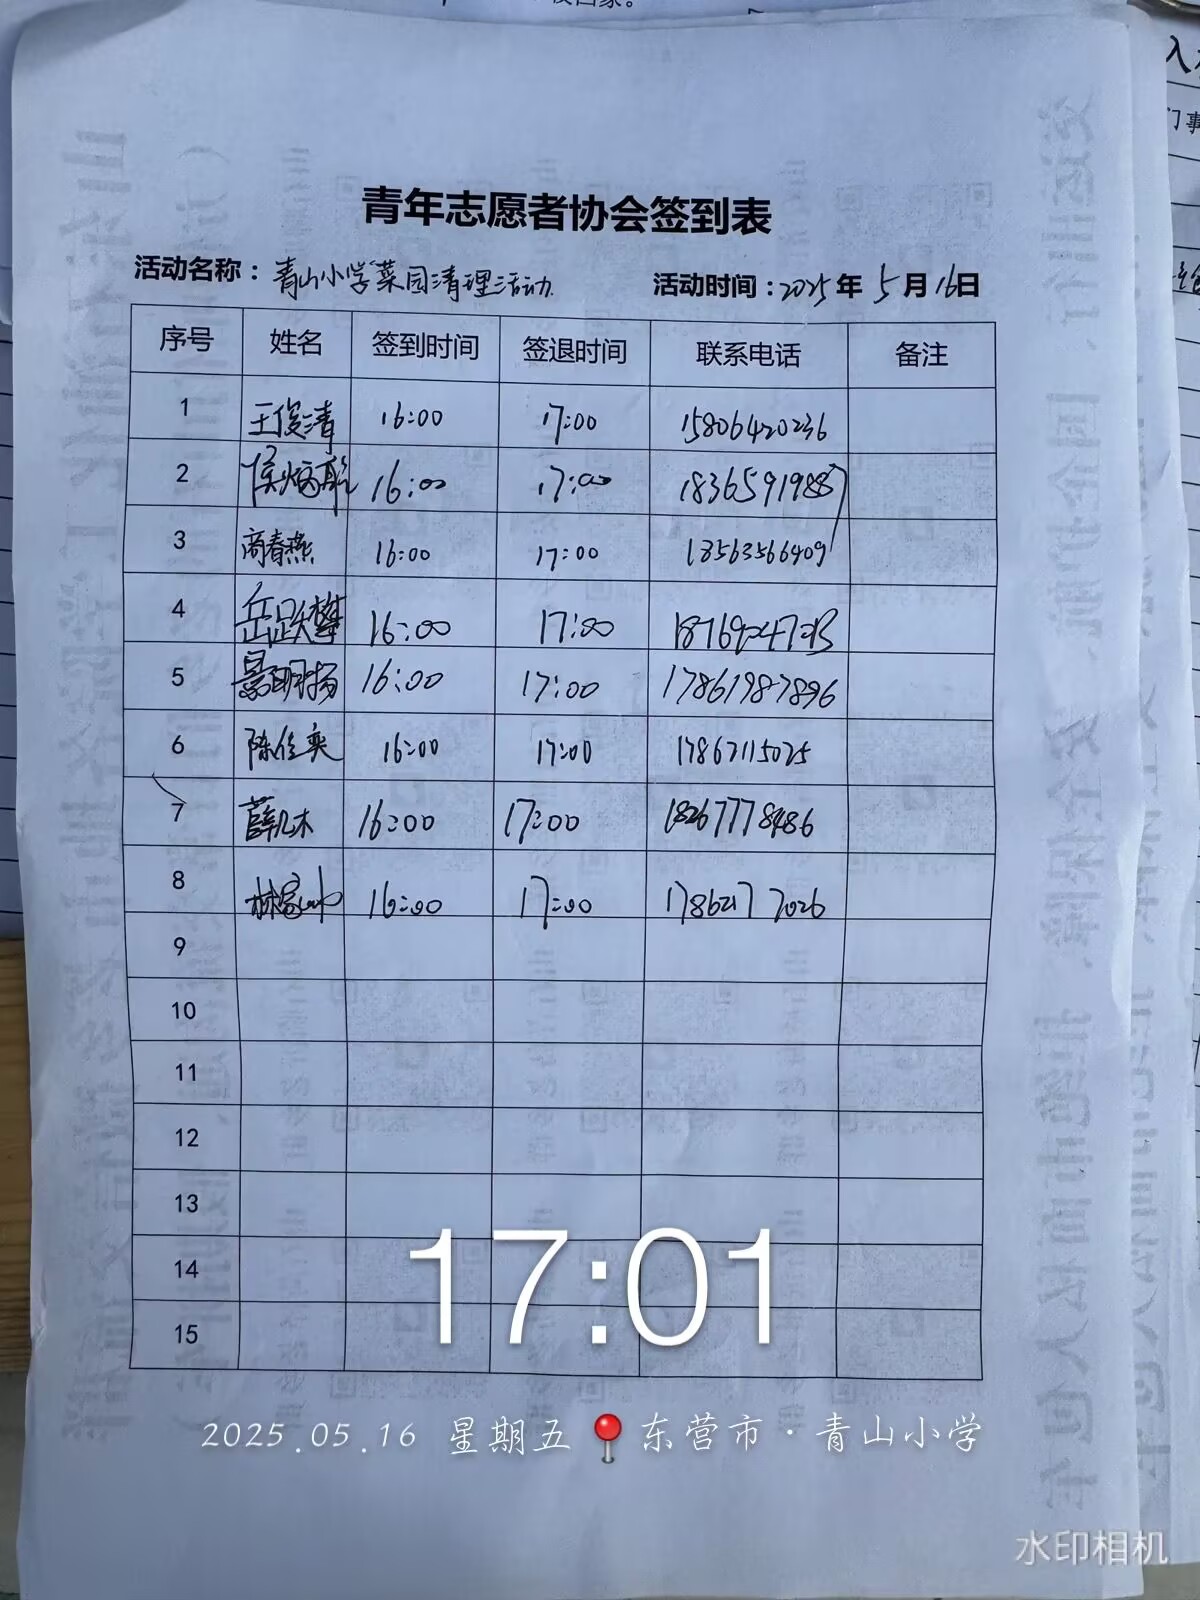 青年志愿者协会签到表
活动名称：青山小学菜园清理活动 活动时间：2025年5月16日
序号 姓名 签到时间 签退时间 联系电话 备注
1 王俊清 16:00 17:00 15806420236
2 16:00 17:00
3 商春燕 16:00 17:00 18563566409
4 16:00 17:00
5 景明扬 16:00 17:00 17861987896
6 陈佳奕 16:00 17:00 17862115025
7 16:00 17:00 18267778486
8 16:00 17:00 17862177026
9
10
11
12
13
14
15
17:01
2025.05.16 星期五 东营市·青山小学
水印相机